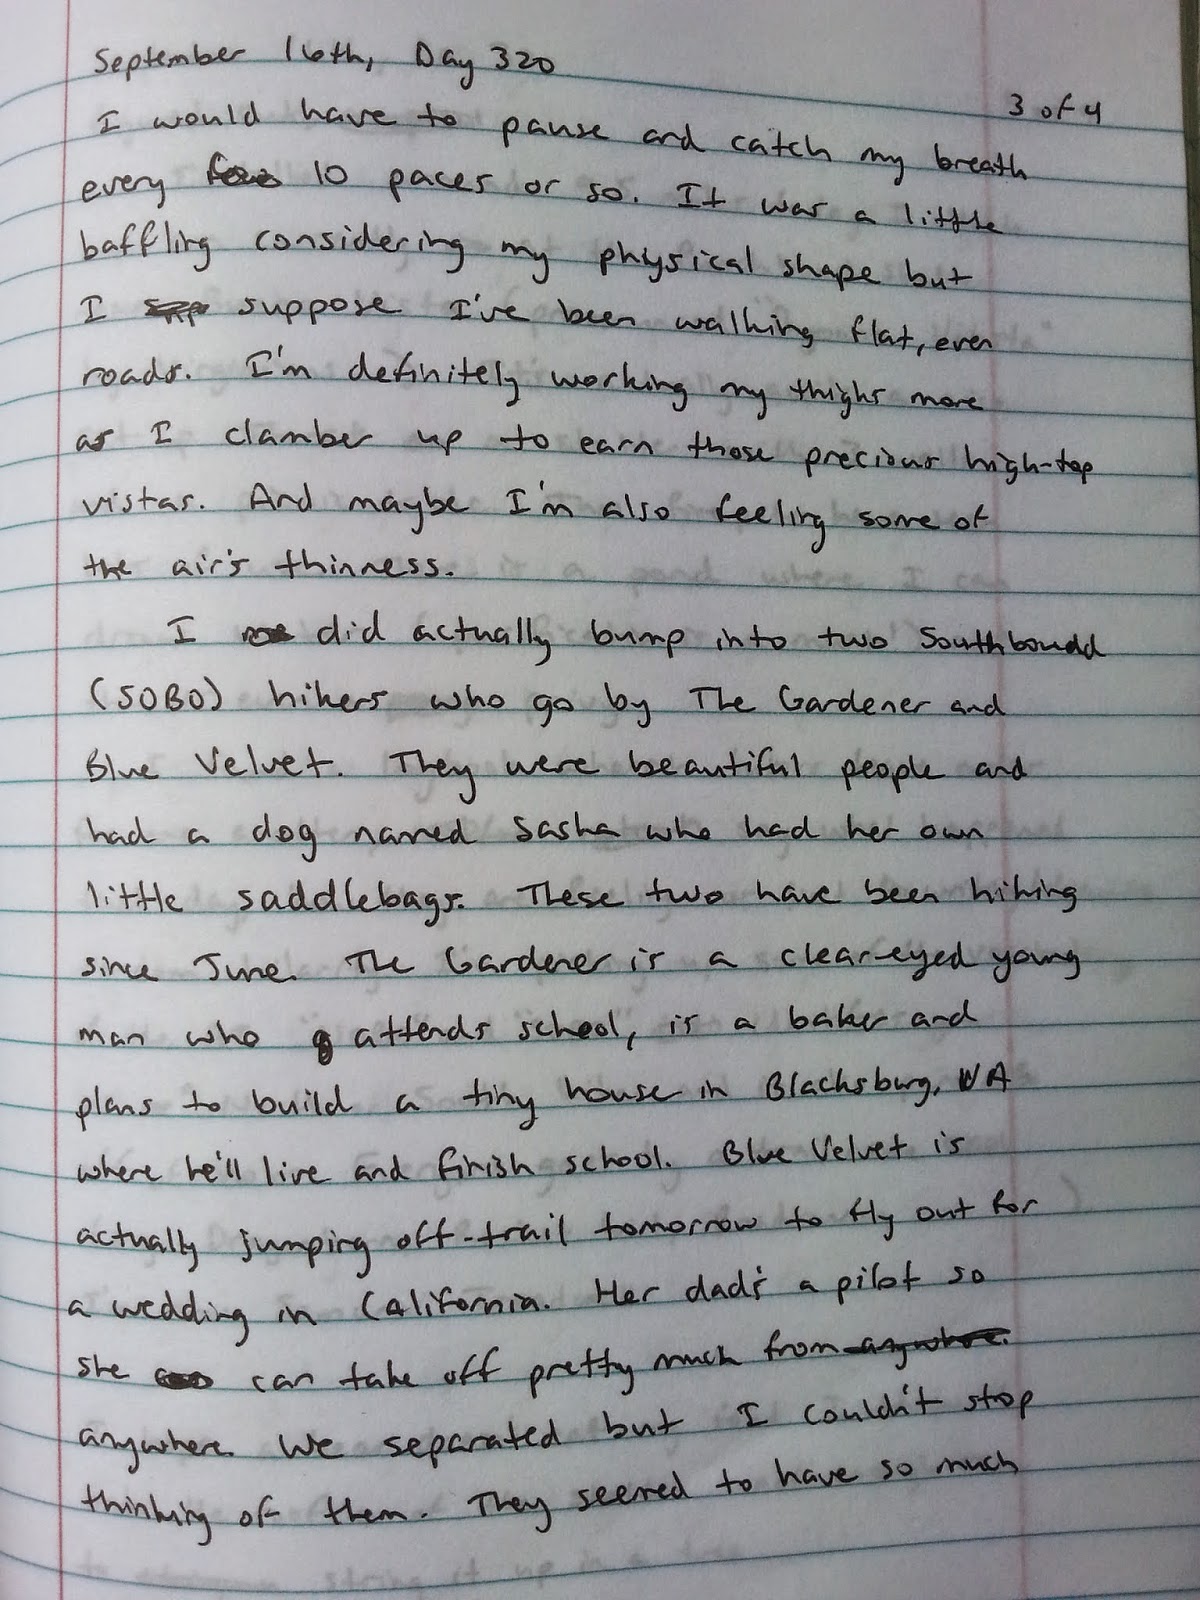 September 16th, Day 320
3 of 4
I would have to pause and catch my breath
every 10 paces or so. It was a little
baffling considering my physical shape but
I suppose I've been walking flat, even
roads. I'm definitely working my thighs more
as I clamber up to earn those precious high-top
vistas. And maybe I'm also feeling some of
the air's thinness.
I did actually bump into two Southbound
(SOBO) hikers who go by The Gardener and
Blue Velvet. They were beautiful people and
had a dog named Sasha who had her own
little saddlebags. These two have been hiking
since June. The Gardener is a clear-eyed young
man who attends school, is a baker and
plans to build a tiny house in Blacksburg, VA
where he'll live and finish school. Blue Velvet is
actually jumping off-trail tomorrow to fly out for
a wedding in California. Her dad's a pilot so
she can take off pretty much from anywhere.
anywhere. We separated but I couldn't stop
thinking of them. They seemed to have so much